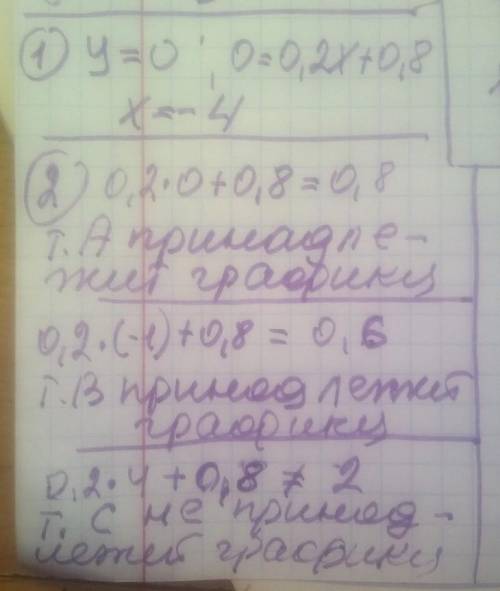 1) y=0; 0=0,2x+0,8
x=-4
2) 0,2·0+0,8=0,8
т.А принадле-
жит графику
0,2·(-1)+0,8=0,6
т.В принадлежит
графику
0,2·4+0,8≠2
т. С не принад-
лежит графику